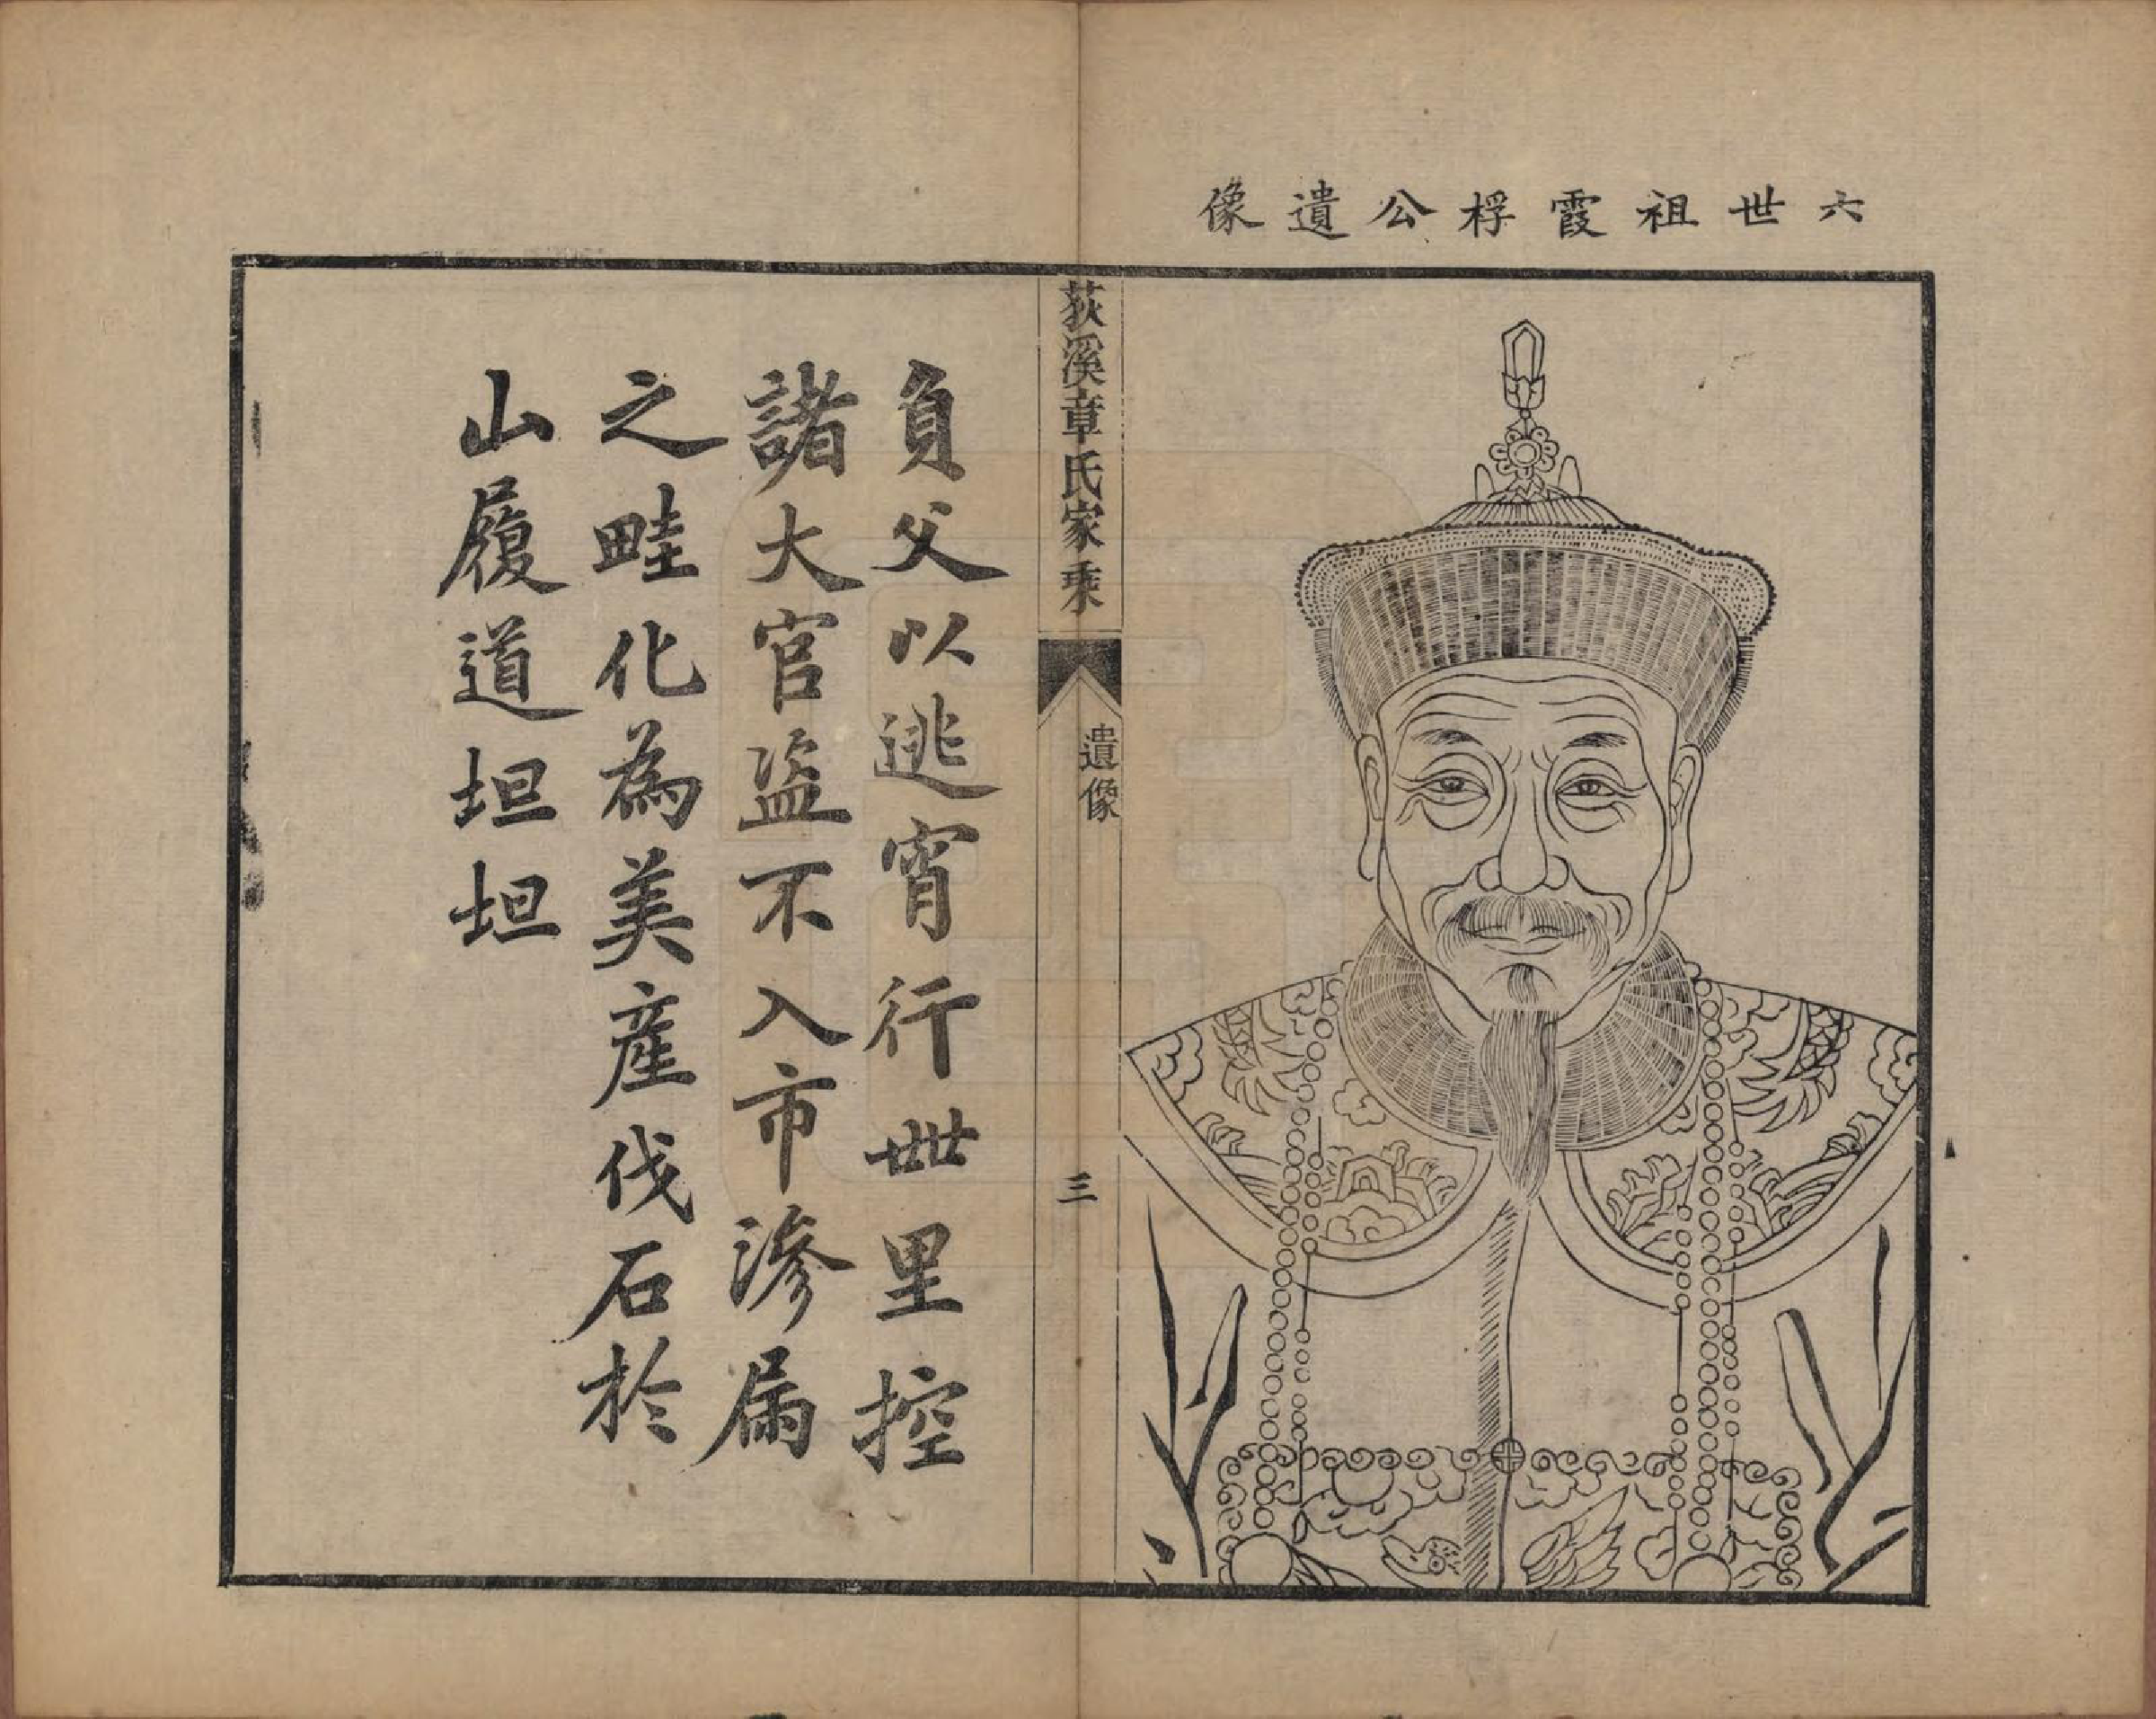 六世祖霞桴公遺像
荻溪章氏家乘
遺像
三
負父以逃宵行丗里控
諸大官盜不入市滲漏
之畦化為美產伐石於
山履道坦坦